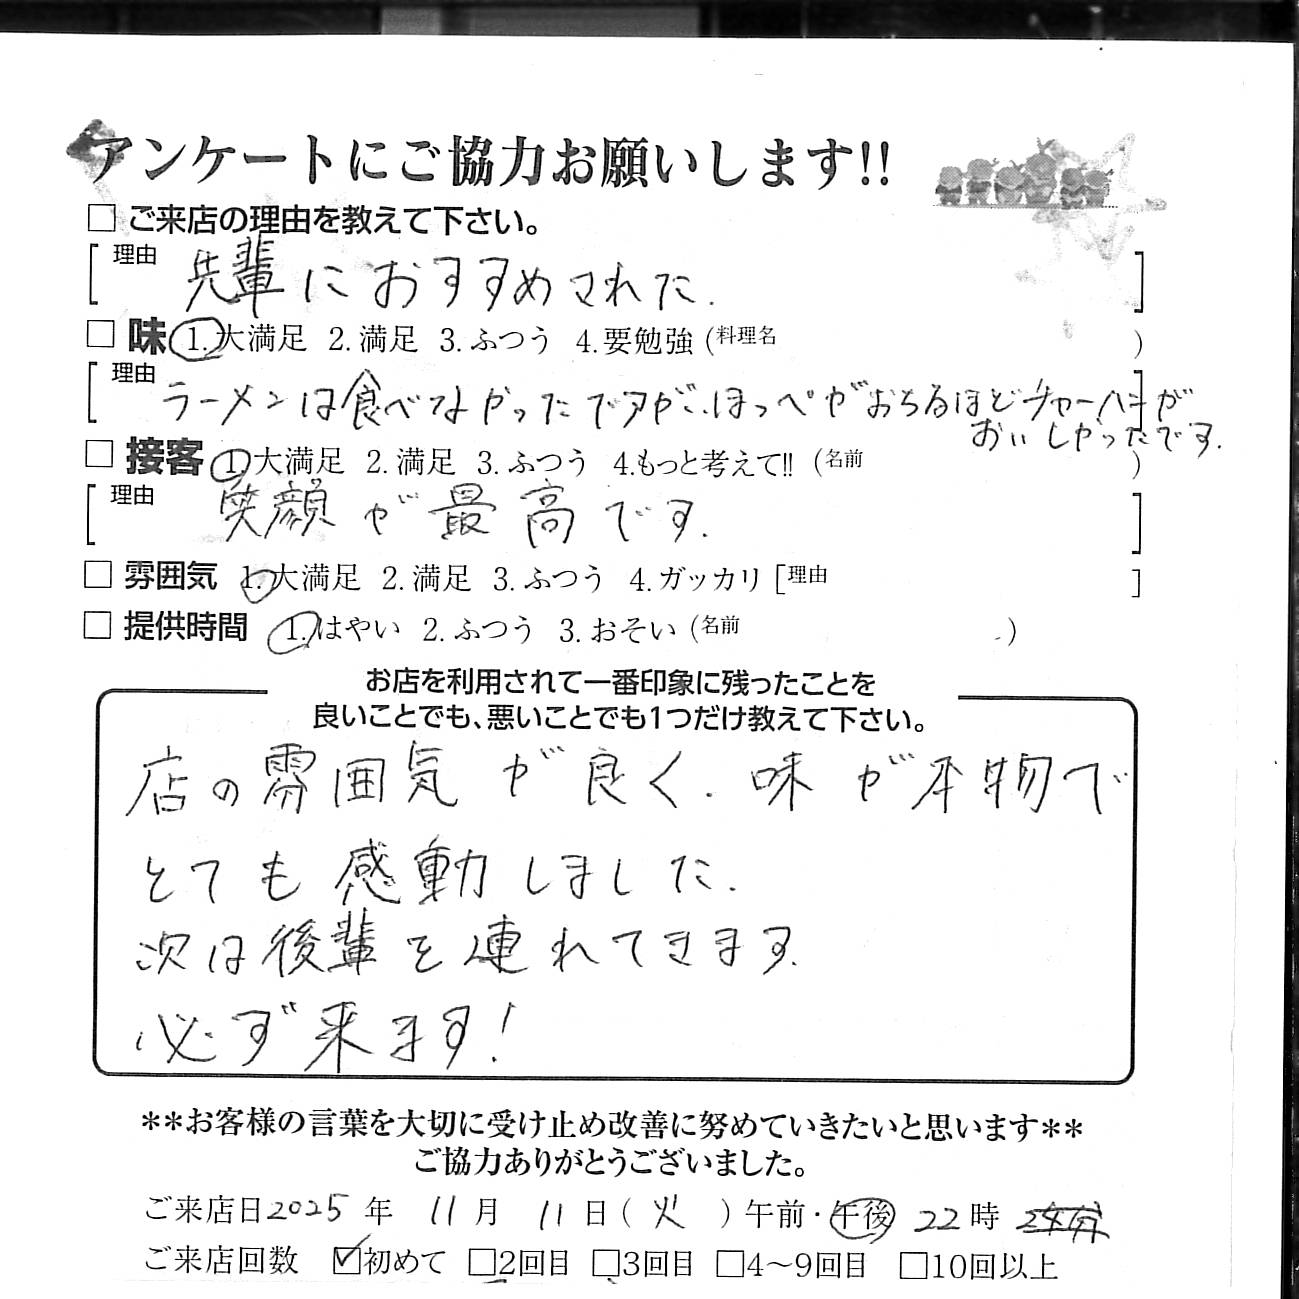 アンケートにご協力お願いします!!
□ ご来店の理由を教えて下さい。
[理由 先輩におすすめされた. ]
□ 味 1.大満足 2.満足 3.ふつう 4.要勉強 (料理名 )
[理由 ラーメンは食べてなかったですが、ほっぺがおちるほどチャーハンが
おいしかったです. ]
□ 接客 1.大満足 2.満足 3.ふつう 4.もっと考えて!! (名前 )
[理由 笑顔が最高です. ]
□ 雰囲気 1.大満足 2.満足 3.ふつう 4.ガッカリ [理由 ]
□ 提供時間 1.はやい 2.ふつう 3.おそい (名前 )
お店を利用されて一番印象に残ったことを
良いことでも、悪いことでも1つだけ教えて下さい。
店の雰囲気が良く. 味が本物で
とても感動しました.
次は後輩を連れてきます.
必ず来ます!
**お客様の言葉を大切に受け止め改善に努めていきたいと思います**
ご協力ありがとうございました。
ご来店日2025年 11月 11日(火)午前・午後 22時
ご来店回数 ☑初めて □2回目 □3回目 □4〜9回目 □10回以上